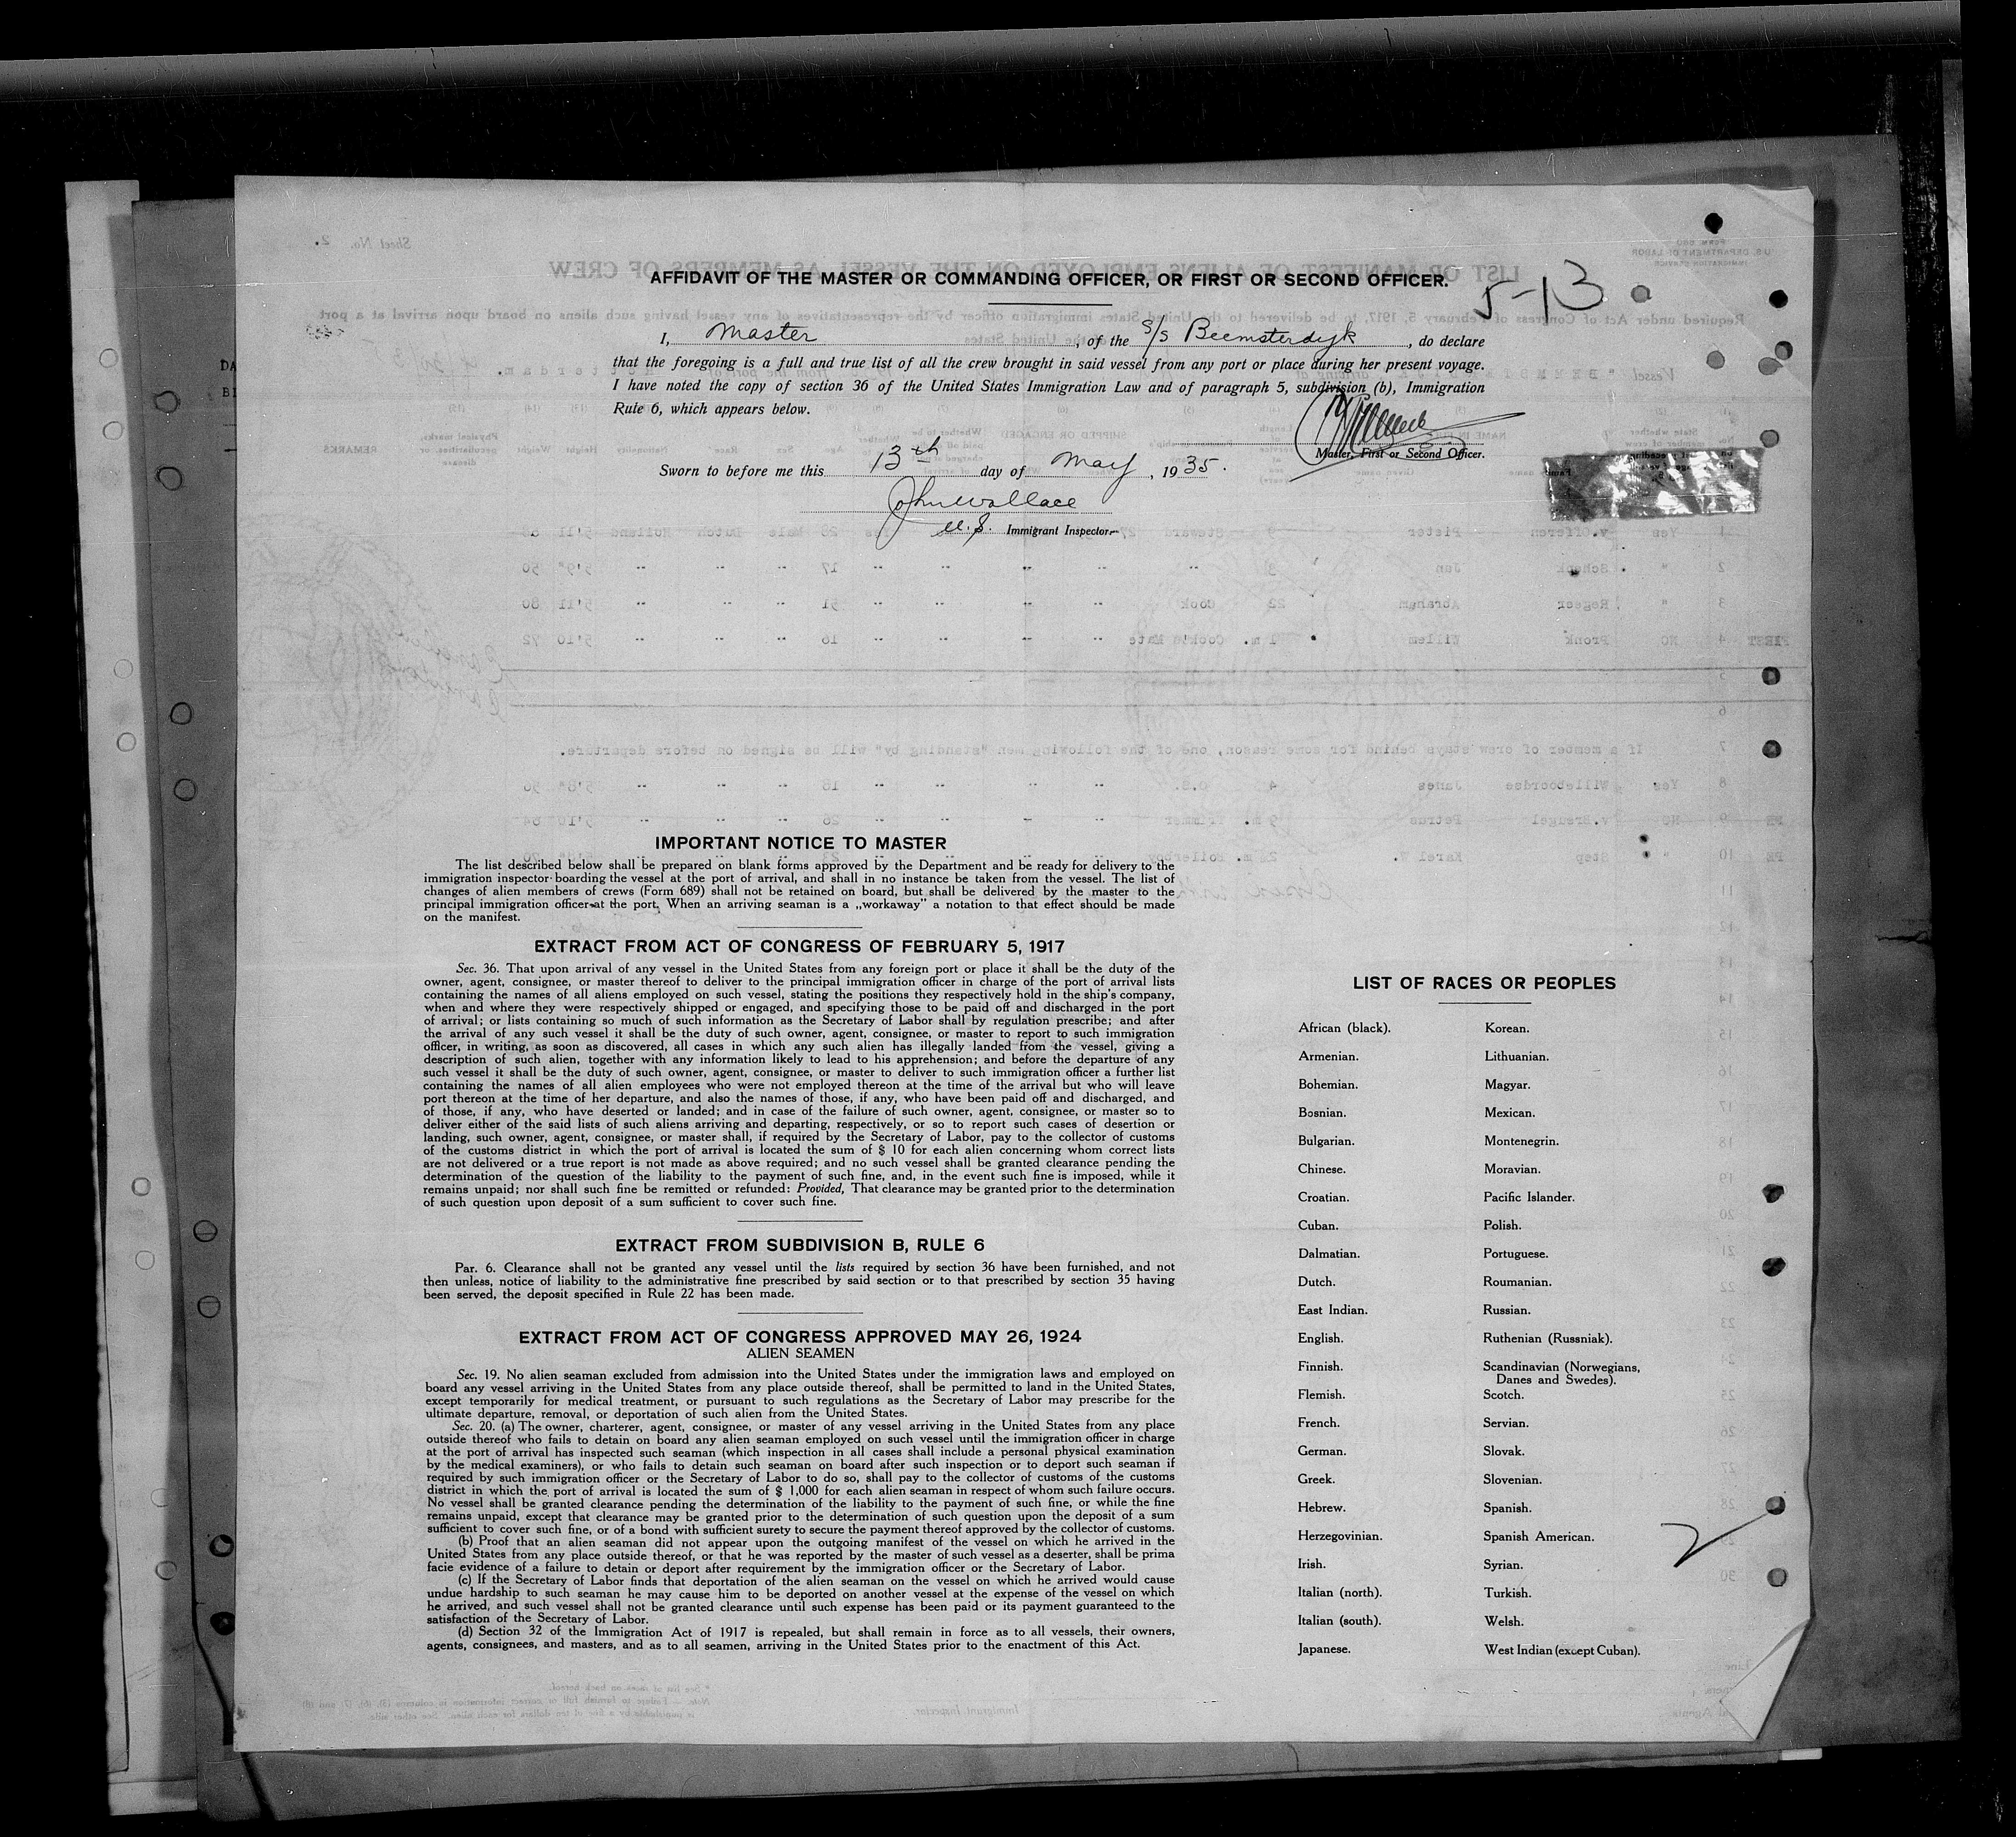 AFFIDAVIT OF THE MASTER OR COMMANDING OFFICER, OR FIRST OR SECOND OFFICER.
5-13
I, Master, of the S/S Beemsterdyk, do declare
that the foregoing is a full and true list of all the crew brought in said vessel from any port or place during her present voyage.
I have noted the copy of section 36 of the United States Immigration Law and of paragraph 5, subdivision (b), Immigration
Rule 6, which appears below.
Master, First or Second Officer.
Sworn to before me this 13th day of May, 1935.
John Wallace
U.S. Immigrant Inspector.
IMPORTANT NOTICE TO MASTER
The list described below shall be prepared on blank forms approved by the Department and be ready for delivery to the
immigration inspector boarding the vessel at the port of arrival, and shall in no instance be taken from the vessel. The list of
changes of alien members of crews (Form 689) shall not be retained on board, but shall be delivered by the master to the
principal immigration officer at the port. When an arriving seaman is a „workaway" a notation to that effect should be made
on the manifest.
EXTRACT FROM ACT OF CONGRESS OF FEBRUARY 5, 1917
Sec. 36. That upon arrival of any vessel in the United States from any foreign port or place it shall be the duty of the
owner, agent, consignee, or master thereof to deliver to the principal immigration officer in charge of the port of arrival lists
containing the names of all aliens employed on such vessel, stating the positions they respectively hold in the ship's company,
when and where they were respectively shipped or engaged, and specifying those to be paid off and discharged in the port
of arrival; or lists containing so much of such information as the Secretary of Labor shall by regulation prescribe; and after
the arrival of any such vessel it shall be the duty of such owner, agent, consignee, or master to report to such immigration
officer, in writing, as soon as discovered, all cases in which any such alien has illegally landed from the vessel, giving a
description of such alien, together with any information likely to lead to his apprehension; and before the departure of any
such vessel it shall be the duty of such owner, agent, consignee, or master to deliver to such immigration officer a further list
containing the names of all alien employees who were not employed thereon at the time of the arrival but who will leave
port thereon at the time of her departure, and also the names of those, if any, who have been paid off and discharged, and
of those, if any, who have deserted or landed; and in case of the failure of such owner, agent, consignee, or master so to
deliver either of the said lists of such aliens arriving and departing, respectively, or so to report such cases of desertion or
landing, such owner, agent, consignee, or master shall, if required by the Secretary of Labor, pay to the collector of customs
of the customs district in which the port of arrival is located the sum of $ 10 for each alien concerning whom correct lists
are not delivered or a true report is not made as above required; and no such vessel shall be granted clearance pending the
determination of the question of the liability to the payment of such fine, and, in the event such fine is imposed, while it
remains unpaid; nor shall such fine be remitted or refunded: Provided, That clearance may be granted prior to the determination
of such question upon deposit of a sum sufficient to cover such fine.
EXTRACT FROM SUBDIVISION B, RULE 6
Par. 6. Clearance shall not be granted any vessel until the lists required by section 36 have been furnished, and not
then unless, notice of liability to the administrative fine prescribed by said section or to that prescribed by section 35 having
been served, the deposit specified in Rule 22 has been made.
EXTRACT FROM ACT OF CONGRESS APPROVED MAY 26, 1924
ALIEN SEAMEN
Sec. 19. No alien seaman excluded from admission into the United States under the immigration laws and employed on
board any vessel arriving in the United States from any place outside thereof, shall be permitted to land in the United States,
except temporarily for medical treatment, or pursuant to such regulations as the Secretary of Labor may prescribe for the
ultimate departure, removal, or deportation of such alien from the United States.
Sec. 20. (a) The owner, charterer, agent, consignee, or master of any vessel arriving in the United States from any place
outside thereof who fails to detain on board any alien seaman employed on such vessel until the immigration officer in charge
at the port of arrival has inspected such seaman (which inspection in all cases shall include a personal physical examination
by the medical examiners), or who fails to detain such seaman on board after such inspection or to deport such seaman if
required by such immigration officer or the Secretary of Labor to do so, shall pay to the collector of customs of the customs
district in which the port of arrival is located the sum of $ 1,000 for each alien seaman in respect of whom such failure occurs.
No vessel shall be granted clearance pending the determination of the liability to the payment of such fine, or while the fine
remains unpaid, except that clearance may be granted prior to the determination of such question upon the deposit of a sum
sufficient to cover such fine, or of a bond with sufficient surety to secure the payment thereof approved by the collector of customs.
(b) Proof that an alien seaman did not appear upon the outgoing manifest of the vessel on which he arrived in the
United States from any place outside thereof, or that he was reported by the master of such vessel as a deserter, shall be prima
facie evidence of a failure to detain or deport after requirement by the immigration officer or the Secretary of Labor.
(c) If the Secretary of Labor finds that deportation of the alien seaman on the vessel on which he arrived would cause
undue hardship to such seaman he may cause him to be deported on another vessel at the expense of the vessel on which
he arrived, and such vessel shall not be granted clearance until such expense has been paid or its payment guaranteed to the
satisfaction of the Secretary of Labor.
(d) Section 32 of the Immigration Act of 1917 is repealed, but shall remain in force as to all vessels, their owners,
agents, consignees, and masters, and as to all seamen, arriving in the United States prior to the enactment of this Act.
LIST OF RACES OR PEOPLES
African (black). Korean.
Armenian. Lithuanian.
Bohemian. Magyar.
Bosnian. Mexican.
Bulgarian. Montenegrin.
Chinese. Moravian.
Croatian. Pacific Islander.
Cuban. Polish.
Dalmatian. Portuguese.
Dutch. Roumanian.
East Indian. Russian.
English. Ruthenian (Russniak).
Finnish. Scandinavian (Norwegians,
Danes and Swedes).
Flemish. Scotch.
French. Servian.
German. Slovak.
Greek. Slovenian.
Hebrew. Spanish.
Herzegovinian. Spanish American.
Irish. Syrian.
Italian (north). Turkish.
Italian (south). Welsh.
Japanese. West Indian (except Cuban).
2